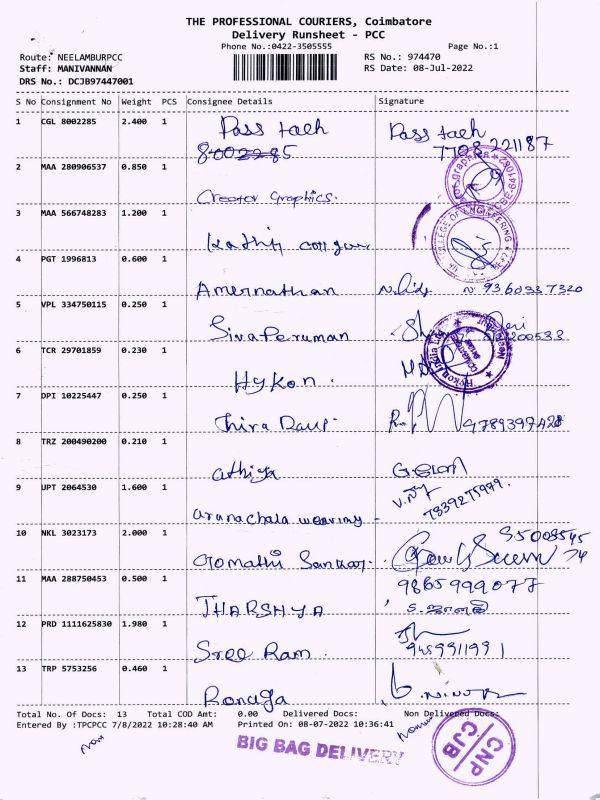 THE PROFESSIONAL COURIERS, Coimbatore
Delivery Runsheet - PCC
Phone No.:0422-3505555 Page No.:1
Route: NEELAMBURPCC RS No.: 974470
Staff: MANIVANNAN RS Date: 08-Jul-2022
DRS No.: DCJB97447001
S No Consignment No Weight PCS Consignee Details Signature
1 CGL 8002285 2.400 1 Pass tach Pass tach
8002285 7708221187
2 MAA 280906537 0.850 1
Creator Graphics.
3 MAA 566748283 1.200 1
COLLEGE OF ENGINEERING
4 PGT 1996813 0.600 1
Amernathan 9360337320
5 VPL 334750115 0.250 1
Sivaperuman
6 TCR 29701859 0.230 1
Hykon.
Hykon India Ltd
7 DPI 10225447 0.250 1
9789397428
8 TRZ 200490200 0.210 1
Athiya
9 UPT 2064530 1.600 1
arunachala weaving
10 NKL 3023173 2.000 1
Gomathi Sankar.
11 MAA 288750453 0.500 1 9865999077
THARSHYA
12 PRD 1111625830 1.980 1
Sree Ram.
13 TRP 5753256 0.460 1
Total No. Of Docs: 13 Total COD Amt: 0.00 Delivered Docs: Non Delivered Docs:
Entered By :TPCPCC 7/8/2022 10:28:40 AM Printed On: 08-07-2022 10:36:41
BIG BAG DELIVERY
CNP
CJB